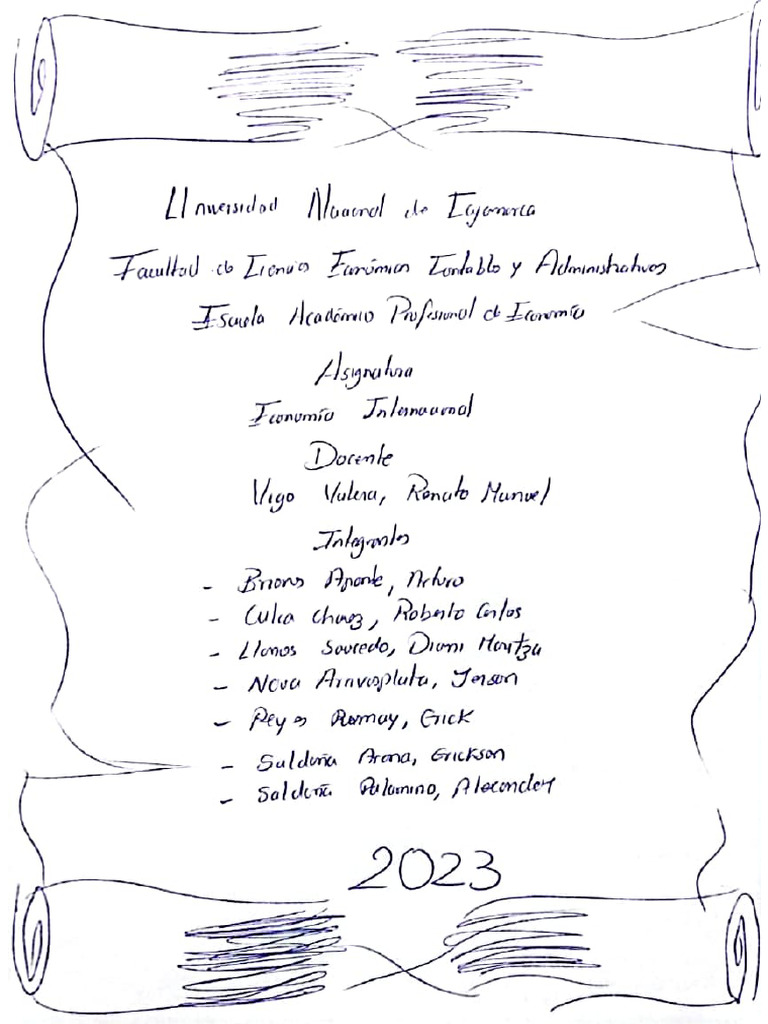 Universidad Nacional de Cajamarca
Facultad de Ciencias Económicas Contables y Administrativas
Escuela Académico Profesional de Economía
Asignatura
Economía Internacional
Docente
Vigo Valera, Renato Manuel
Integrantes
- Briones Aponte, Arturo
- Culca Chavez, Roberto Carlos
- Llanos Saucedo, Diani Maritza
- Nova Aravesplata, Jerson
- Reyes Rumay, Erick
- Saldaña Arana, Erickson
- Saldaña Palomino, Alexander
2023